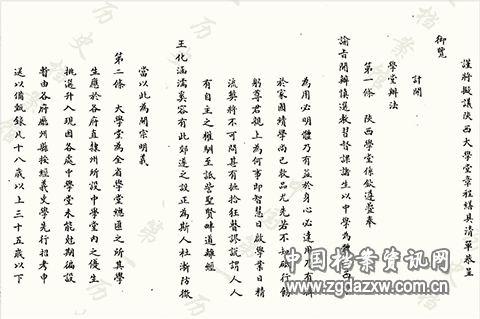 謹將擬議陝西大學堂章程繕具清單恭呈
御覽
計開
學堂辦法
第一條 陝西學堂係欽遵疊奉
諭旨開辦慎選教習督課諸生以中學為體西
為用必明體乃有益於身心必達用乃有濟
於家國績學尚已敦品尤先若不知砥行勤
躬尊君親上為何事即智慧日啟學業日精
流弊將不可問甚有摭拾狂瞽謬説謂人人
有自主之權馴至詆訾聖賢畔道離經
王化涵濡奚容有此之設正為斯人杜漸防微
當以此為開宗明義
第二條 大學堂為全省學堂總匯之所其學
生應於各府直隸州所設中學堂內之優生
挑選升入現因各處中學堂未能尅期徧設
暫由各府廳州縣按經義史學先行招考申
送以備甄録凡十八歲以上三十五歲以下
中国档案资讯网
www.zgdazxw.com.cn